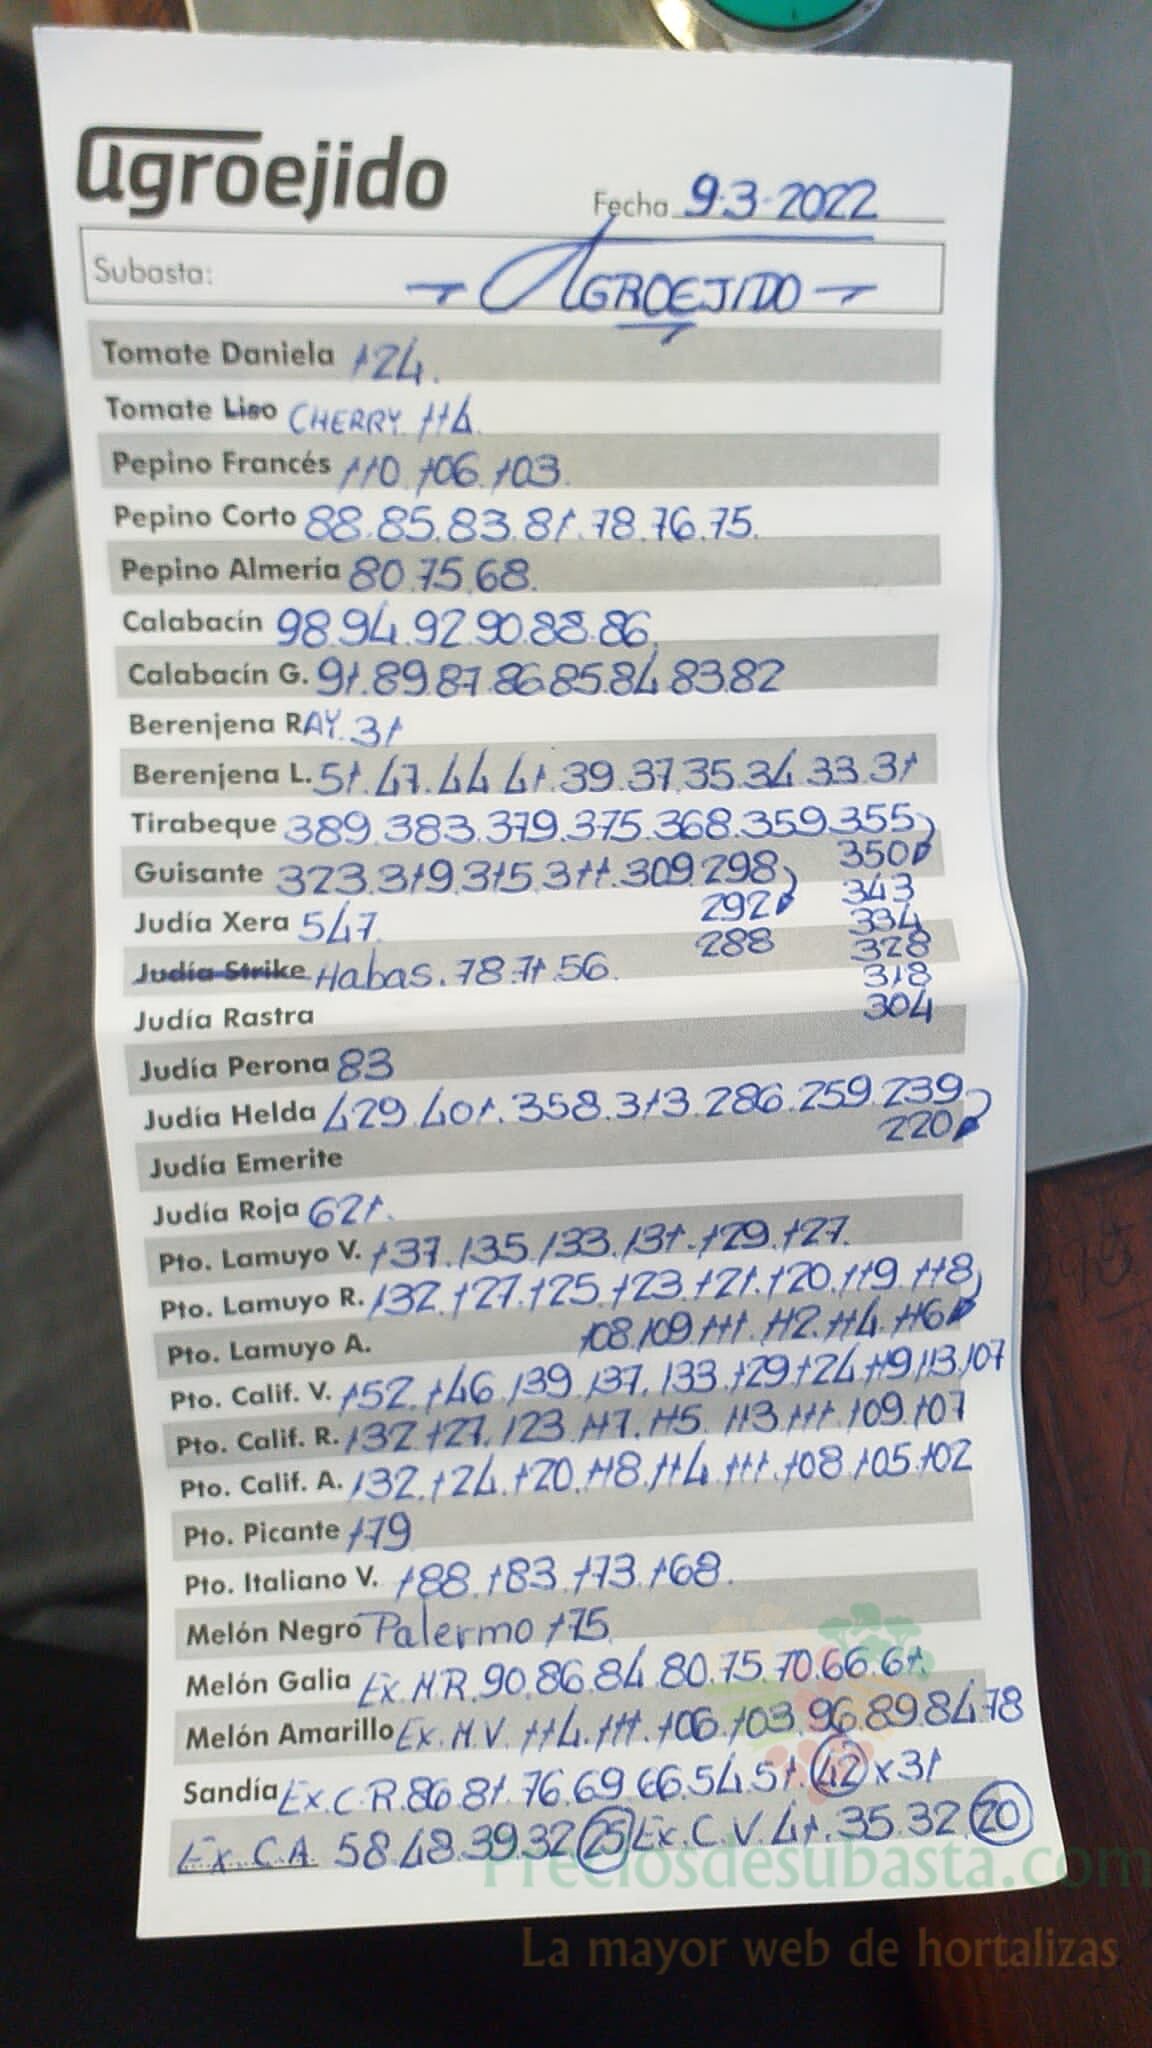 agroejido
Fecha 9-3-2022
Subasta: AGROEJIDO
Tomate Daniela 124.
Tomate Liso CHERRY. 114.
Pepino Francés 110.106.103.
Pepino Corto 88.85.83.81.78.76.75.
Pepino Almería 80.75.68.
Calabacín 98.94.92.90.88.86.
Calabacín G. 91.89.87.86.85.84.83.82
Berenjena RAY. 31
Berenjena L. 51.47.44.41.39.37.35.34.33.31
Tirabeque 389.383.379.375.368.359.355
350
Guisante 323.319.315.311.309.298
343
292
Judía Xera 547.
334
288
328
Judía Strike Habas. 78.71.56.
318
304
Judía Rastra
Judía Perona 83
Judía Helda 429.401.358.313.286.259.239
220
Judía Emerite
Judía Roja 621.
Pto. Lamuyo V. 137.135.133.131.129.127.
Pto. Lamuyo R. 132.127.125.123.121.120.119.118
108.109.111.112.114.116
Pto. Lamuyo A.
Pto. Calif. V. 152.146.139.137.133.129.124.119.113.107
Pto. Calif. R. 132.127.123.117.115.113.111.109.107
Pto. Calif. A. 132.124.120.118.114.111.108.105.102
Pto. Picante 179
Pto. Italiano V. 188.183.173.168.
Melón Negro Palermo 175
Melón Galia Ex.M.R. 90.86.84.80.75.70.66.61.
Melón Amarillo Ex.M.V. 114.111.106.103.96.89.84.78
Sandía Ex.C.R. 86.81.76.69.66.54.51.42 x 31
Ex.C.A. 58.48.39.32 25 Ex.C.V. 41.35.32.20
Preciosdesubasta.com
La mayor web de hortalizas